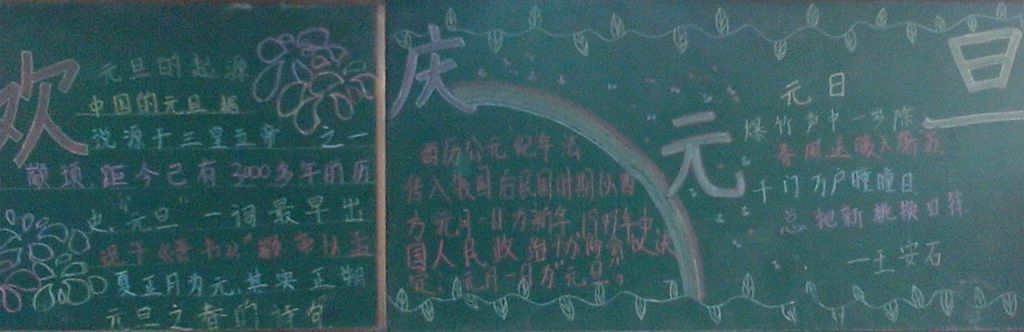 欢庆元旦
元旦的起源
中国的元旦据
说源于三皇五帝之一
颛顼,距今已有3000多年的历
史,"元旦"一词最早出
现于《晋书》
夏正月为元,其实正朔
元旦之春的诗句
西历公元纪年法
传入我国后民国时期以西
方元月一日为新年,1949年中
国人民政治协商会议决
定:元月一日为元旦。
元日
爆竹声中一岁除
春风送暖入屠苏
千门万户瞳瞳日
总把新桃换旧符
一王安石